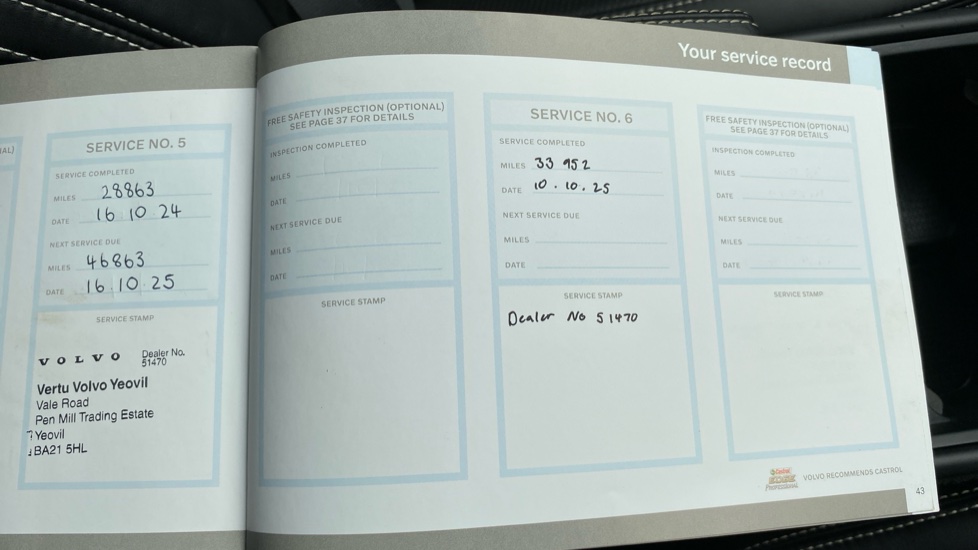 Your service record
IAL)
SERVICE NO. 5
SERVICE COMPLETED
MILES 28863
DATE 16 10 24
NEXT SERVICE DUE
MILES 46863
DATE 16 10 25
SERVICE STAMP
VOLVO Dealer No.
51470
Vertu Volvo Yeovil
Vale Road
Pen Mill Trading Estate
Yeovil
BA21 5HL
FREE SAFETY INSPECTION (OPTIONAL)
SEE PAGE 37 FOR DETAILS
INSPECTION COMPLETED
MILES
DATE
NEXT SERVICE DUE
MILES
DATE
SERVICE STAMP
SERVICE NO. 6
SERVICE COMPLETED
MILES 33 952
DATE 10.10.25
NEXT SERVICE DUE
MILES
DATE
SERVICE STAMP
Dealer No 51470
FREE SAFETY INSPECTION (OPTIONAL)
SEE PAGE 37 FOR DETAILS
INSPECTION COMPLETED
MILES
DATE
NEXT SERVICE DUE
MILES
DATE
SERVICE STAMP
Castrol
EDGE
PROFESSIONAL
VOLVO RECOMMENDS CASTROL
43